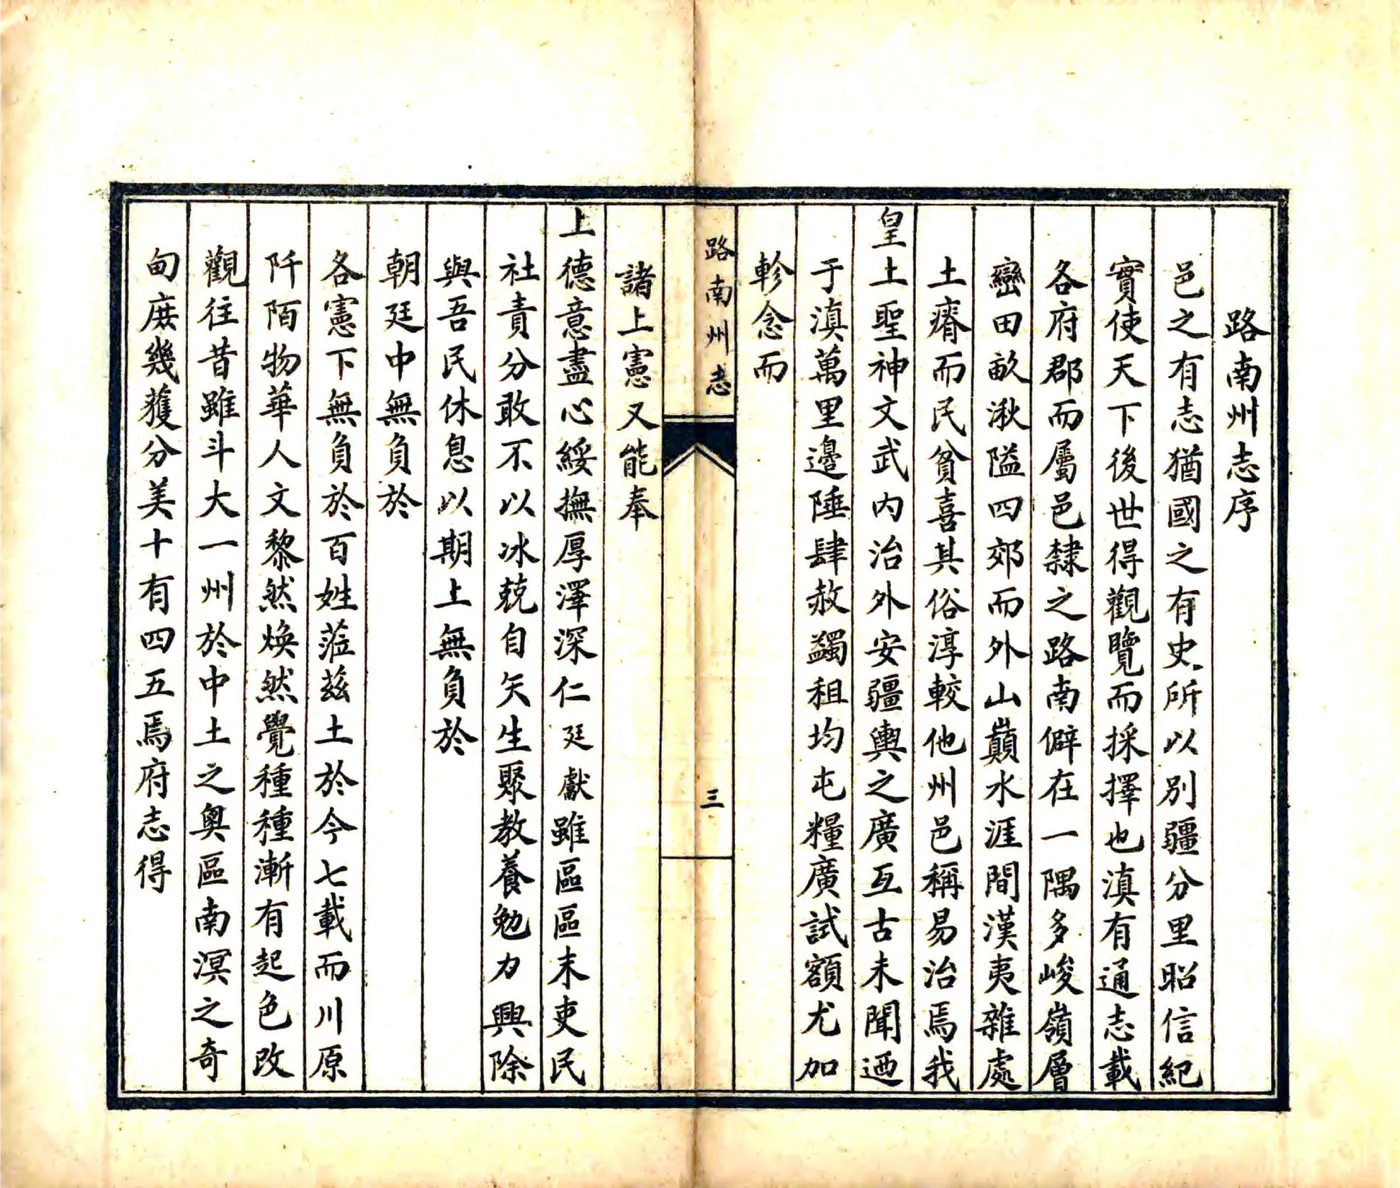 路南州志序
邑之有志猶國之有史所以別疆分里昭信紀
實使天下後世得觀覽而採擇也滇有通志載
各府郡而屬邑隸之路南僻在一隅多峻嶺層
巒田畝湫隘四郊而外山巔水涯間漢夷雜處
土瘠而民貧喜其俗淳較他州邑稱易治焉我
皇上聖神文武內治外安疆輿之廣亙古未聞迺
于滇萬里邊陲肆赦蠲租均屯糧廣試額尤加
軫念而
路南州志
三
諸上憲又能奉
上德意盡心綏撫厚澤深仁廷獻雖區區末吏民
社責分敢不以冰兢自矢生聚教養勉力興除
與吾民休息以期上無負於
朝廷中無負於
各憲下無負於百姓蒞茲土於今七載而川原
阡陌物華人文黎然煥然覺種種漸有起色改
觀往昔雖斗大一州於中土之奧區南溟之奇
甸庶幾獲分美十有四五焉府志得